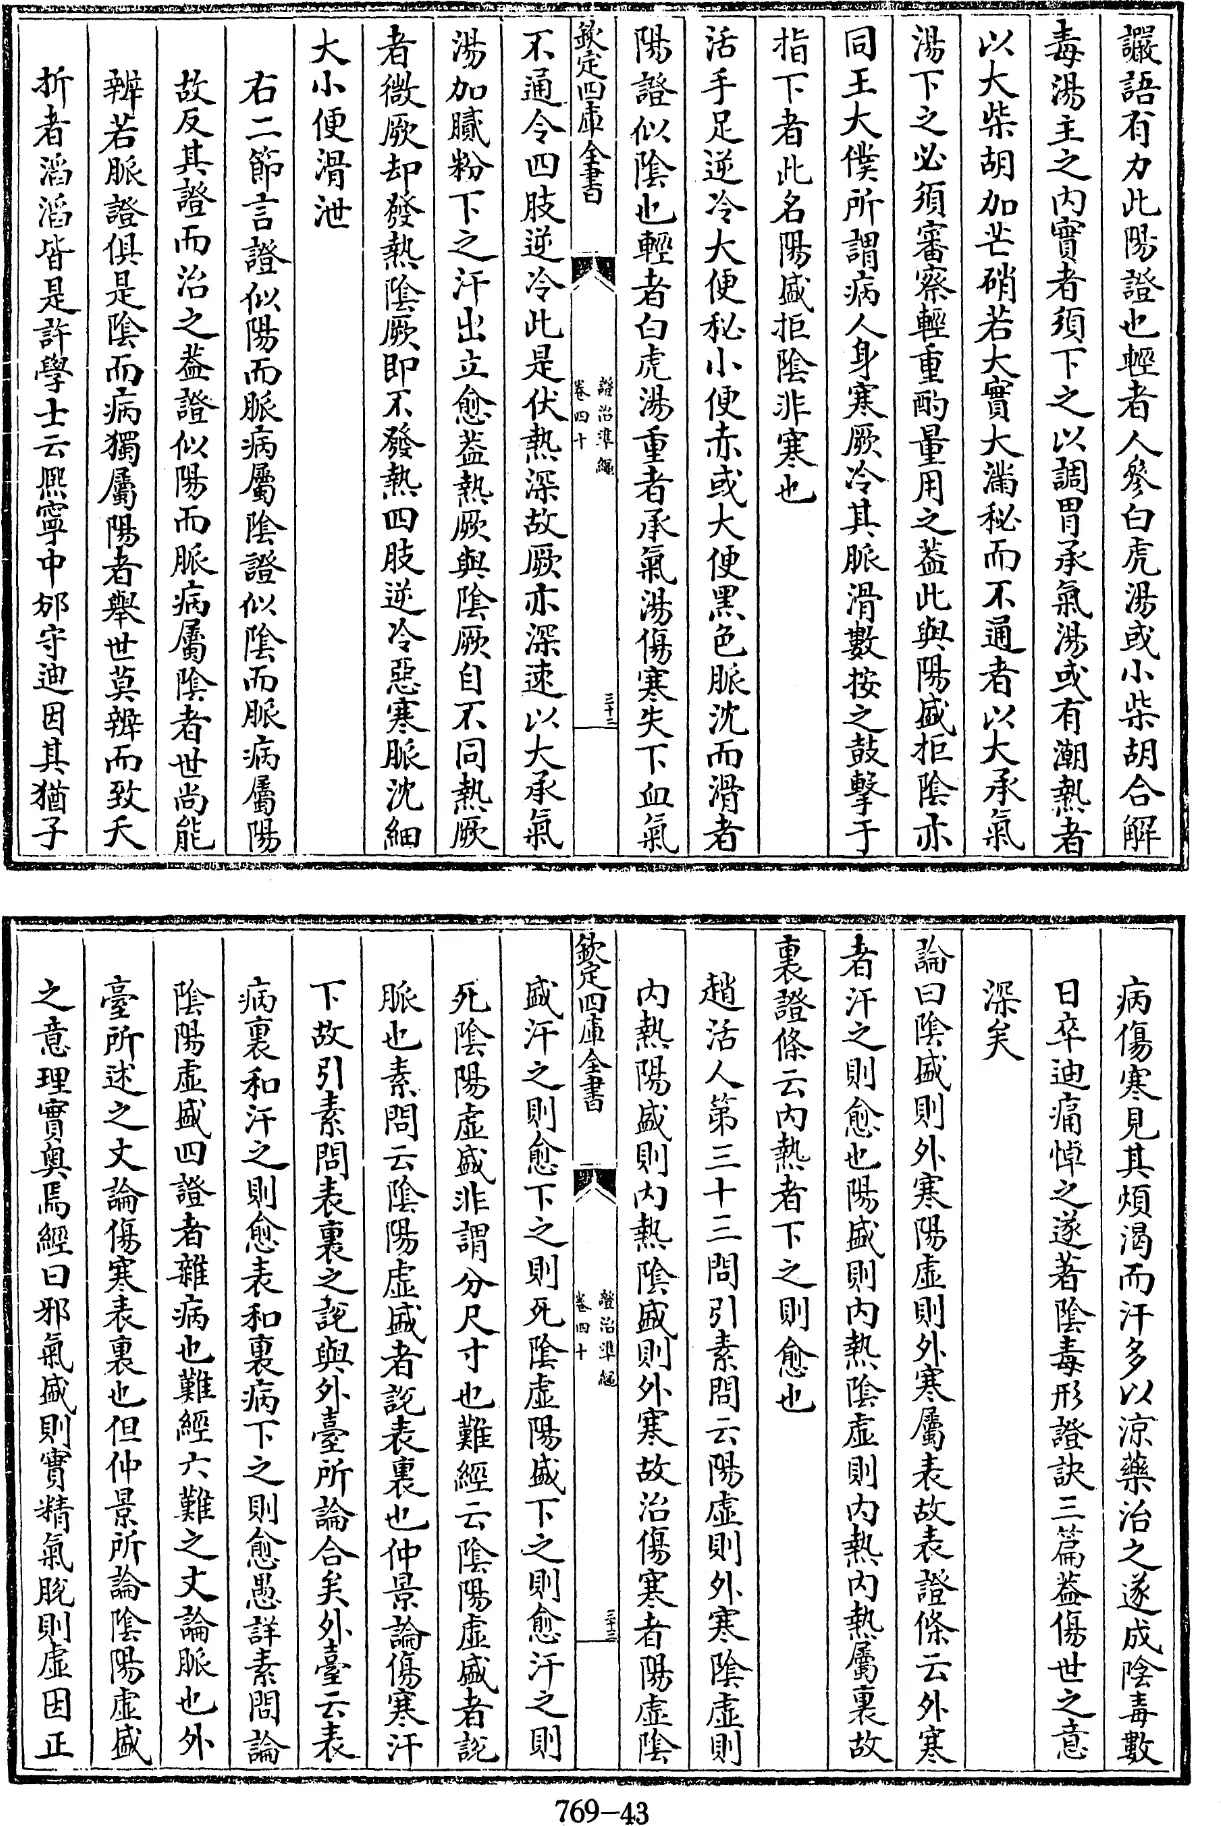 讝語有力此陽證也輕者人參白虎湯或小柴胡合解
毒湯主之内實者須下之以調胃承氣湯或有潮熱者
以大柴胡加芒硝若大實大滿秘而不通者以大承氣
湯下之必須審察輕重酌量用之葢此與陽盛拒陰亦
同王大僕所謂病人身寒厥冷其脈滑數按之鼓擊于
指下者此名陽盛拒陰非寒也
活手足逆冷大便秘小便赤或大便黑色脈沈而滑者
陽證似陰也輕者白虎湯重者承氣湯傷寒失下血氣
欽定四庫全書
證治準繩
卷四十
三十二
不通令四肢逆冷此是伏熱深故厥亦深速以大承氣
湯加膩粉下之汗出立愈葢熱厥與陰厥自不同熱厥
者微厥却發熱陰厥即不發熱四肢逆冷惡寒脈沈細
大小便滑泄
右二節言證似陽而脈病屬陰證似陰而脈病屬陽
故反其證而治之葢證似陽而脈病屬陰者世尚能
辨若脈證俱是陰而病獨屬陽者舉世莫辨而致夭
折者滔滔皆是許學士云熈寧中邠守迪因其猶子
病傷寒見其煩渴而汗多以涼藥治之遂成陰毒數
日卒迪痛悼之遂著陰毒形證訣三篇葢傷世之意
深矣
論曰陰盛則外寒陽虛則外寒屬表故表證條云外寒
者汗之則愈也陽盛則内熱陰虛則内熱内熱屬裏故
裏證條云内熱者下之則愈也
趙活人第三十三問引素問云陽虛則外寒陰虛則
内熱陽盛則内熱陰盛則外寒故治傷寒者陽虛陰
欽定四庫全書
證治準繩
卷四十
三十三
盛汗之則愈下之則死陰虛陽盛下之則愈汗之則
死陰陽虛盛非謂分尺寸也難經云陰陽虛盛者說
脈也素問云陰陽虛盛者說表裏也仲景論傷寒汗
下故引素問表裏之說與外臺所論合矣外臺云表
病裏和汗之則愈表和裏病下之則愈愚詳素問論
陰陽虛盛四證者雜病也難經六難之文論脈也外
臺所述之文論傷寒表裏也但仲景所論陰陽虛盛
之意理實奥焉經曰邪氣盛則實精氣脫則虛因正
769-43